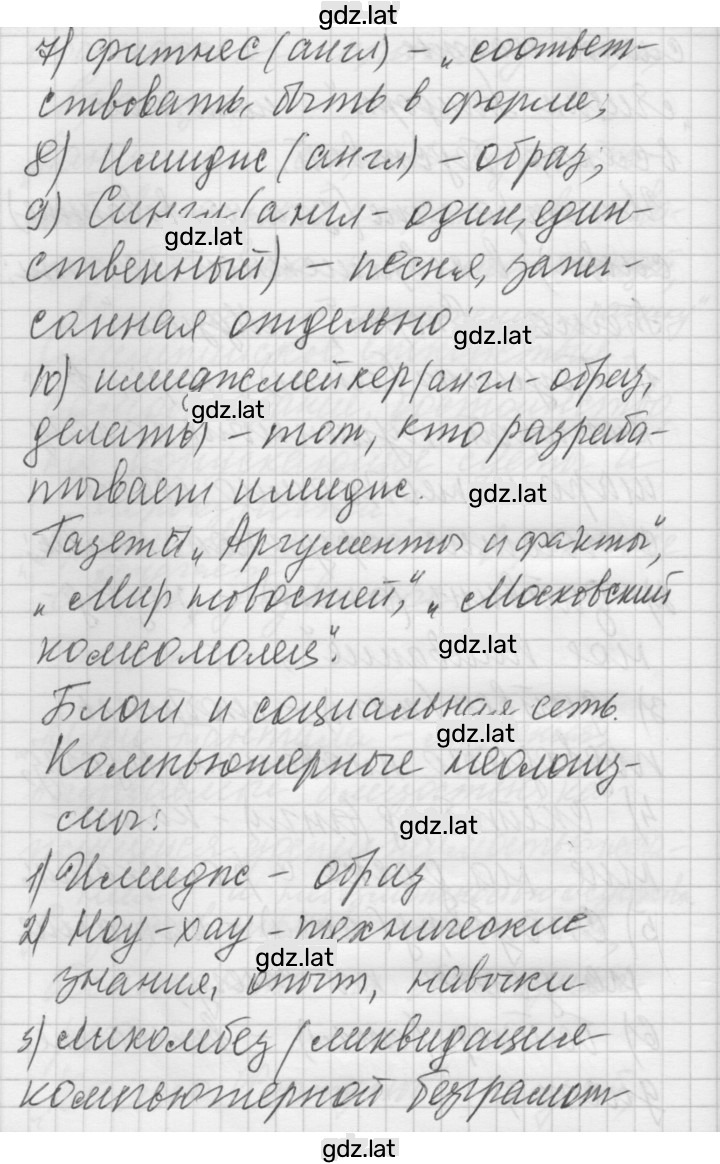 gdz.lat
7) фитнес (англ) – „соответ-
ствовать, быть в форме;
8) Имидж (англ) – образ;
9) Сингл (англ – один, един-
gdz.lat
ственный) – песня, запи-
санная отдельно;
gdz.lat
10) имиджмейкер (англ – образ,
gdz.lat
делать) – тот, кто разраба-
тывает имидж.
gdz.lat
Газеты „Аргументы и факты",
„Мир новостей", „Московский
комсомолец".
gdz.lat
Блоги и социальная сеть.
gdz.lat
Компьютерные неологиз-
мы:
gdz.lat
1) Имидж – образ
2) Ноу-хау – технические
gdz.lat
знания, опыт, навыки
3) Ликомбез (ликвидация
компьютерной безграмот
gdz.lat